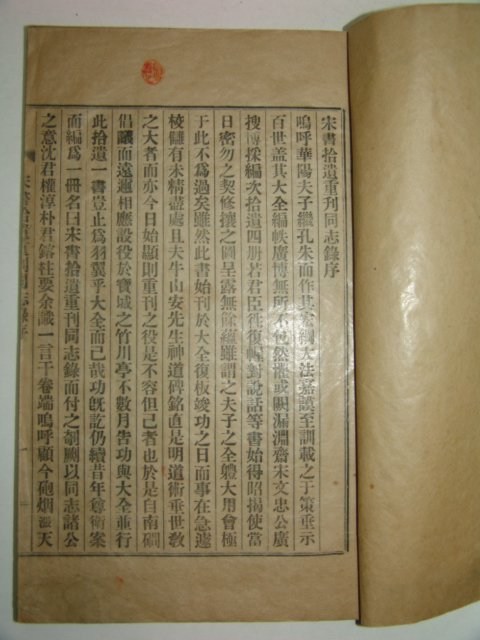 宋書拾遺重刊同志錄序
嗚呼華陽夫子繼孔朱而作其宏綱大法嘉謨至訓載之于策垂示
百世盖其大全編帙廣博無所不包然惟或闕漏淵齋宋文忠公廣
搜博採編次拾遺四册若君臣徃復幄對說話等書始得昭揭使當
日密勿之契修攘之圖呈露無餘縕雖謂之夫子之全軆大用會極
于此不爲過矣雖然此書始刊於大全復板竣功之日而事在急遽
梭讎有未精盡處且夫牛山安先生神道碑銘直是明道術垂世敎
之大者而亦今日始顯則重刊之役是不容但已者也於是自南磵
倡議而遠邇相應設役於寶城之竹川亭不數月告功與大全並行
此拾遺一書豈止爲羽翼乎大全而已哉功旣訖仍續昔年尊衛案
而編爲一册名曰宋書拾遺重刊同志錄而付之剞劂以同志諸公
之意沈君權淳朴君鎔柱要余識一言于卷端嗚呼顧今砲烟漲天
宋書拾遺重刊同志錄序